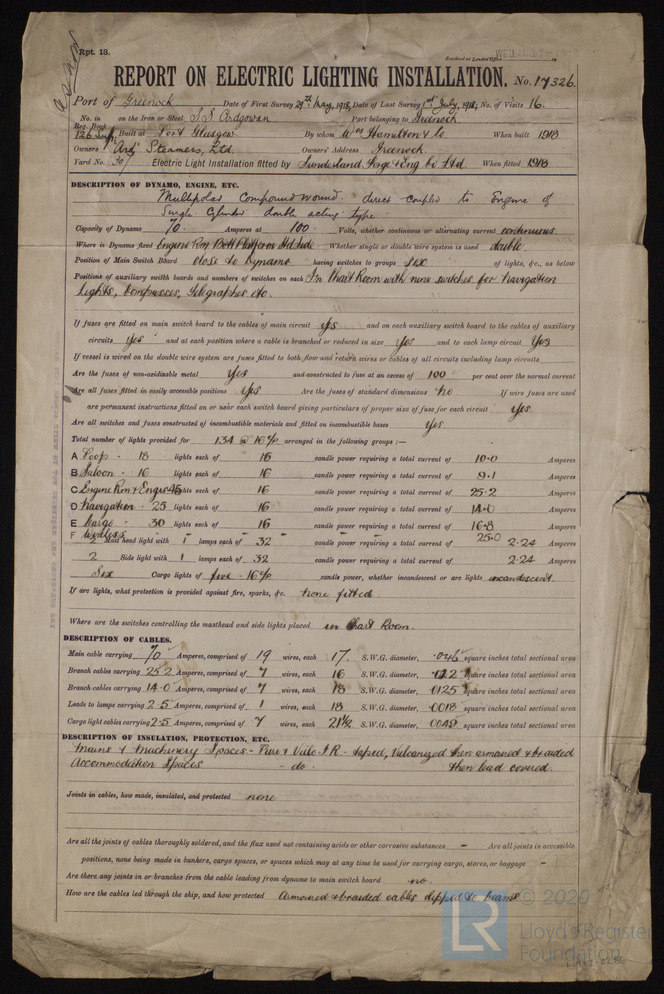 Rpt. 13.
REPORT ON ELECTRIC LIGHTING INSTALLATION. No. 17326.
Port of Greenock Date of First Survey 29th May, 1918, Date of Last Survey 1st July, 1918; No. of Visits 16.
No. in on the Iron or Steel S.S. Ardgowan Port belonging to Greenock
Reg. Book
126 Sup. Built at Port Glasgow By whom Wm Hamilton & Co When built 1918
Owners "Ard" Steamers, Ltd. Owners' Address Greenock
Yard No. 307 Electric Light Installation fitted by Sunderland Forge & Eng Co Ltd. When fitted 1918
DESCRIPTION OF DYNAMO, ENGINE, ETC.
Multipolar Compound wound direct coupled to Engine of
Single Cylinder double acting type
Capacity of Dynamo 70 Amperes at 100 Volts, whether continuous or alternating current continuous
Where is Dynamo fixed Engine Rm Bott Platform Std Side Whether single or double wire system is used double
Position of Main Switch Board close to Dynamo having switches to groups six of lights, &c., as below
Positions of auxiliary switch boards and numbers of switches on each In Chart Room with nine switches for Navigation
lights, Compasses, Telegraphes etc.
If fuses are fitted on main switch board to the cables of main circuit yes and on each auxiliary switch board to the cables of auxiliary
circuits Yes and at each position where a cable is branched or reduced in size Yes and to each lamp circuit Yes
If vessel is wired on the double wire system are fuses fitted to both flow and return wires or cables of all circuits including lamp circuits
Are the fuses of non-oxidizable metal Yes and constructed to fuse at an excess of 100 per cent over the normal current
Are all fuses fitted in easily accessible positions Yes Are the fuses of standard dimensions No If wire fuses are used
are permanent instructions fitted on or near each switch board giving particulars of proper size of fuse for each circuit Yes
Are all switches and fuses constructed of incombustible materials and fitted on incombustible bases Yes
Total number of lights provided for 134 @ 16 c/p arranged in the following groups :—
A Poop - 18 lights each of 16 candle power requiring a total current of 10.0 Amperes
B Saloon - 16 lights each of 16 candle power requiring a total current of 9.1 Amperes
C Engine Rm & Engrs 45 lights each of 16 candle power requiring a total current of 25.2 Amperes
D Navigation - 25 lights each of 16 candle power requiring a total current of 14.0 Amperes
E Cargo - 30 lights each of 16 candle power requiring a total current of 16.8 Amperes
F Wireless - - - 25.0
2 Mast head light with 1 lamps each of 32 candle power requiring a total current of 2.24 Amperes
2 Side light with 1 lamps each of 32 candle power requiring a total current of 2.24 Amperes
Six Cargo lights of five - 16 c/p candle power, whether incandescent or arc lights incandescent.
If arc lights, what protection is provided against fire, sparks, &c. None fitted
Where are the switches controlling the masthead and side lights placed in Chart Room.
DESCRIPTION OF CABLES.
Main cable carrying 70 Amperes, comprised of 19 wires, each 17 S.W.G. diameter, .046 square inches total sectional area
Branch cables carrying 25.2 Amperes, comprised of 7 wires, each 16 S.W.G. diameter, .022 square inches total sectional area
Branch cables carrying 14.0 Amperes, comprised of 7 wires, each 18 S.W.G. diameter, .0125 square inches total sectional area
Leads to lamps carrying 2.5 Amperes, comprised of 1 wires, each 18 S.W.G. diameter, .0018 square inches total sectional area
Cargo light cables carrying 2.5 Amperes, comprised of 7 wires, each 21½ S.W.G. diameter, .0042 square inches total sectional area
DESCRIPTION OF INSULATION, PROTECTION, ETC.
Mains & Machinery Spaces - Pure & Vulc. I.R. - taped, Vulcanized then armoured & braided
Accommodation Spaces - do. then lead covered.
Joints in cables, how made, insulated, and protected none
Are all the joints of cables thoroughly soldered, and the flux used not containing acids or other corrosive substances - Are all joints in accessible
positions, none being made in bunkers, cargo spaces, or spaces which may at any time be used for carrying cargo, stores, or baggage -
Are there any joints in or branches from the cable leading from dynamo to main switch board no.
How are the cables led through the ship, and how protected Armoured & braided cables clipped to beams
© 2020
LR Lloyd's Register
Foundation